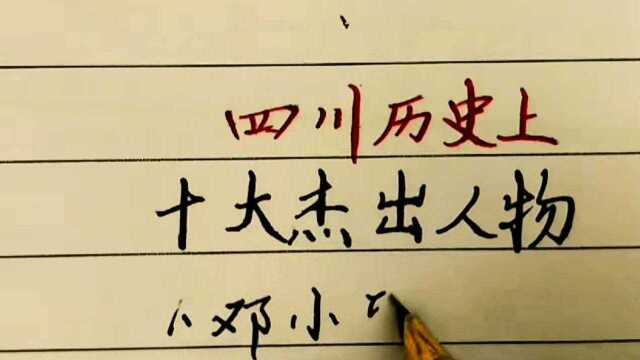 四川历史上
十大杰出人物
1、邓小